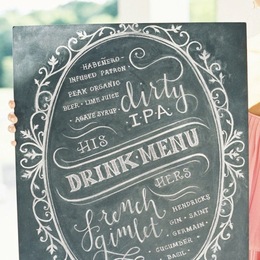 HABENERO-
INFUSED PATRON·
PEAK ORGANIC
BEER · LIME JUICE
AGAVE SYRUP·
dirty
I.P.A
HIS
DRINK·MENU
HERS
french
gimlet
HENDRICKS
GIN · SAINT
GERMAIN·
CUCUMBER
BASIL·